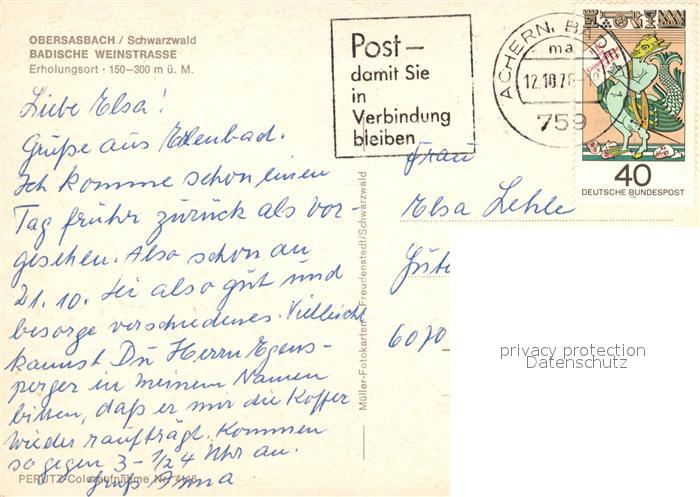 OBERSASBACH / Schwarzwald
BADISCHE WEINSTRASSE
Erholungsort · 150–300 m ü. M.
Liebe Elsa!
Grüße aus Erlenbad.
Ich komme schon einen
Tag früher zurück als vor-
gesehen. Also schon am
21. 10. Sei also gut und
besorge verschiedenes. Vielleicht
kannst Du Herrn Egens-
perger in meinem Namen
bitten, daß er mir die Koffer
wieder raufträgt. Kommen
so gegen 3 - 1/2 4 Uhr an.
Gruß Anna
PERUTZ-Coloraufnahme Nr.
Müller-Fotokarten Freudenstadt/Schwarzwald
Post –
damit Sie
in
Verbindung
bleiben
ACHERN, BA
ma
12.10.76
759
40
DEUTSCHE BUNDESPOST
Frau
Elsa Lehle
6070
privacy protection
Datenschutz